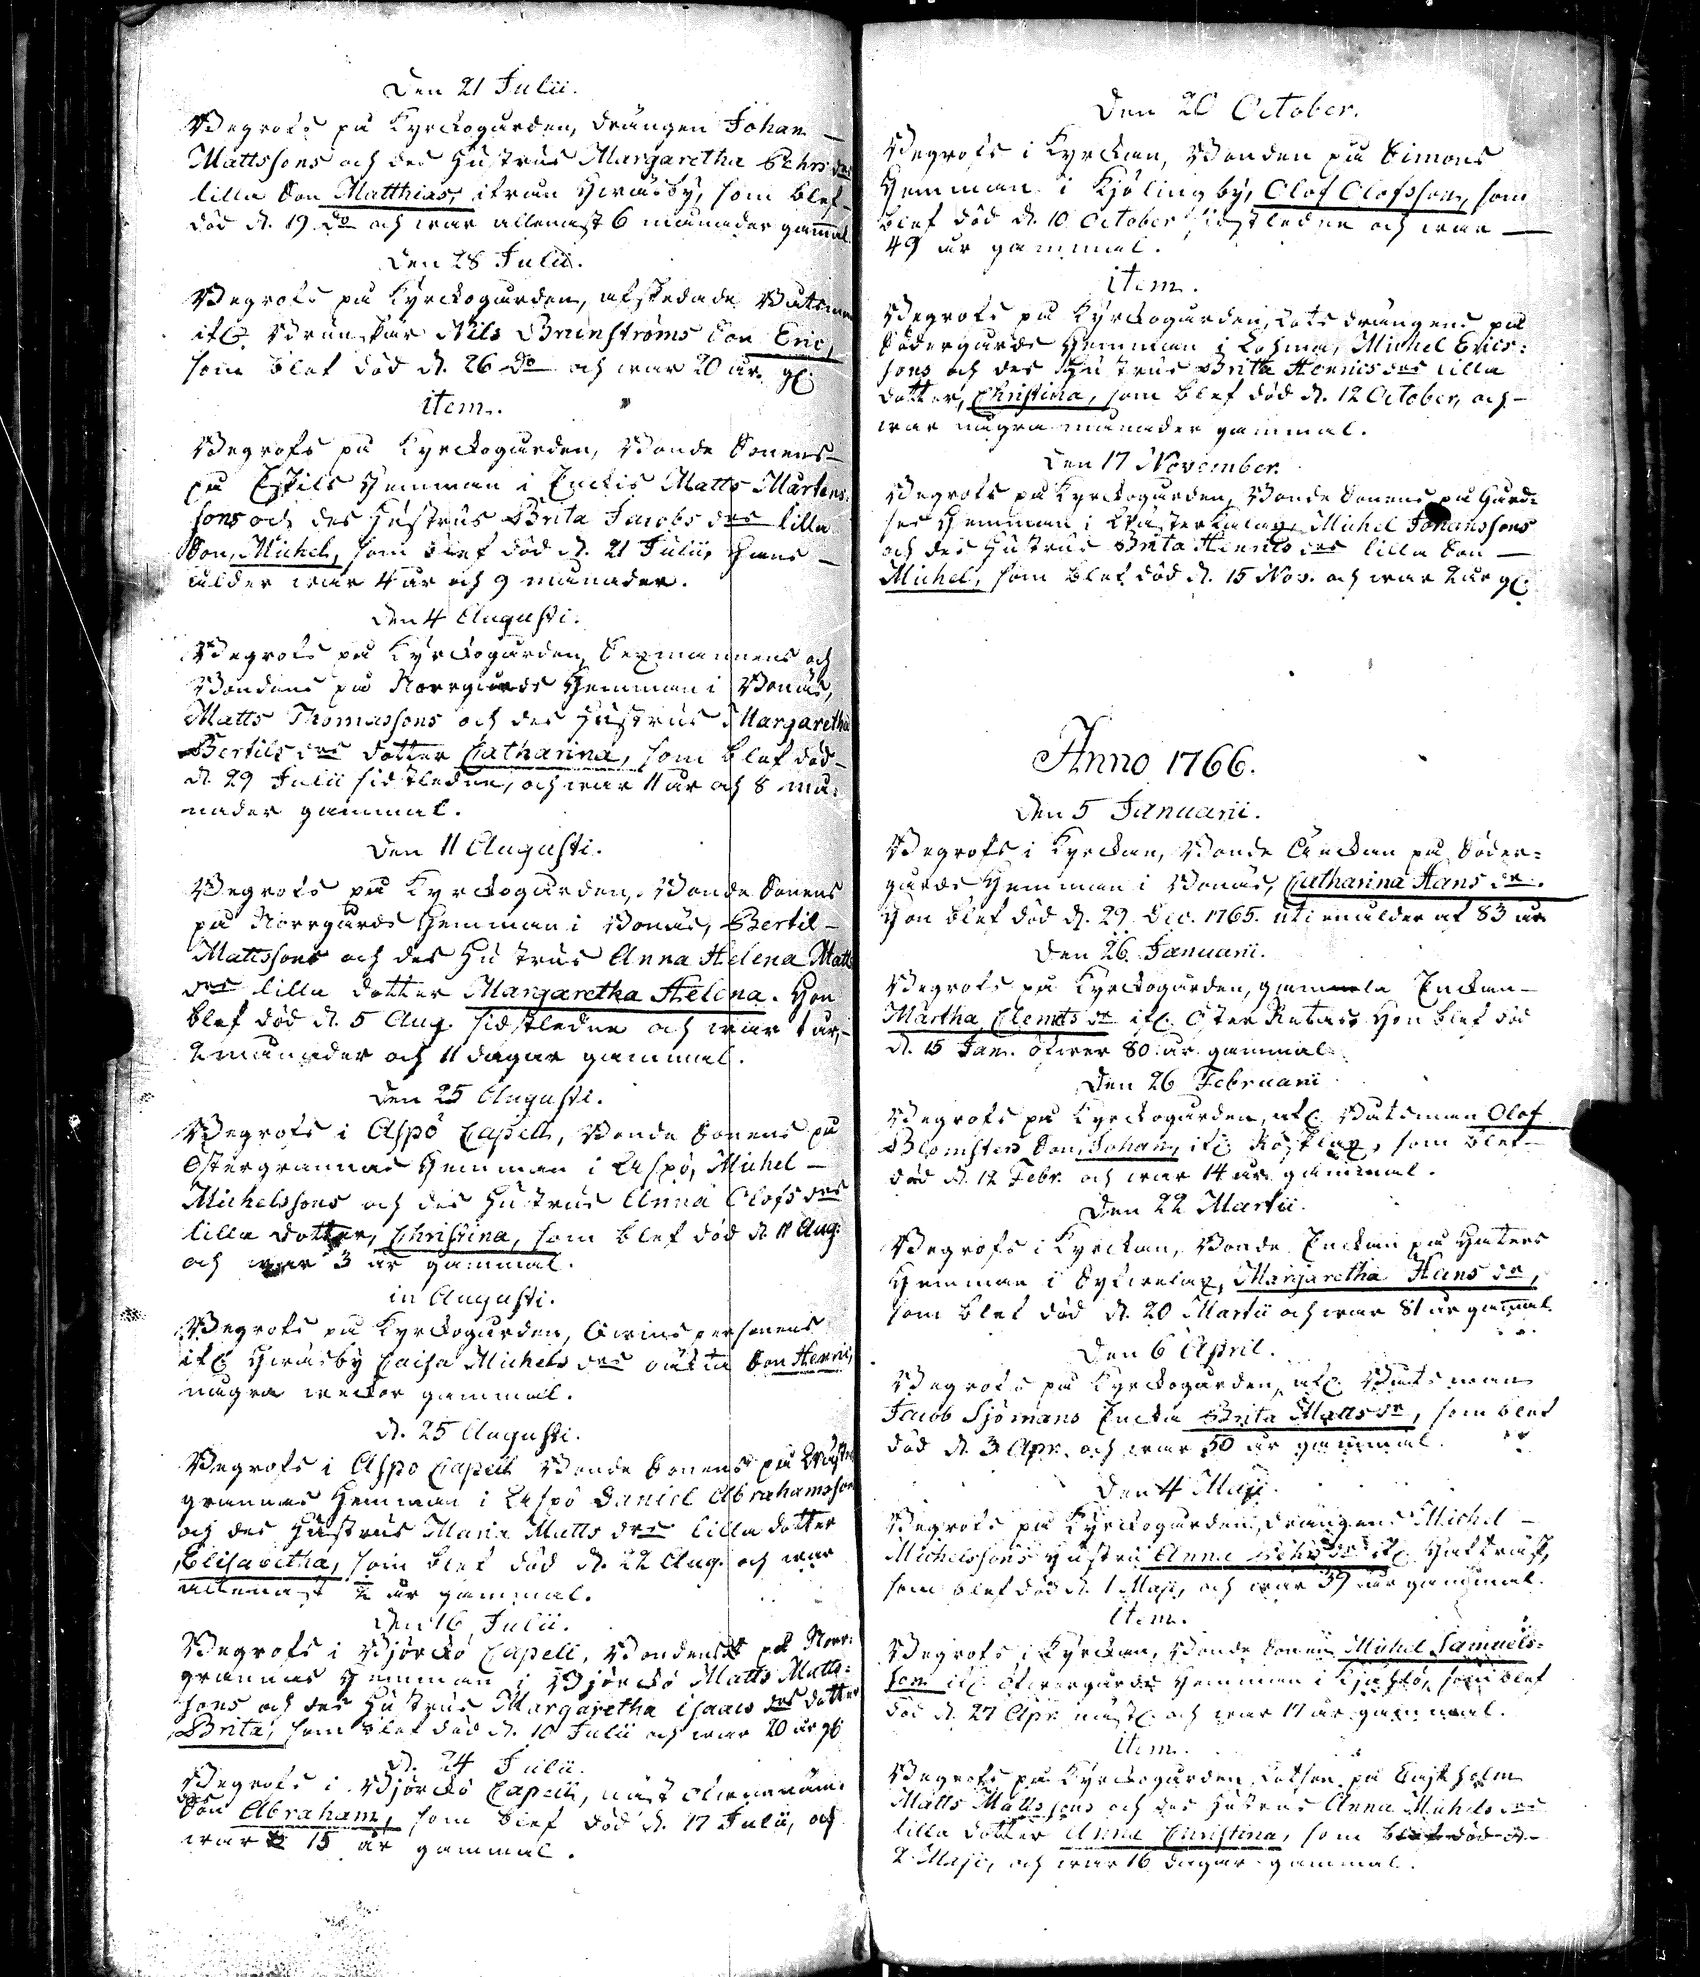 Den 21 Julii.
Begrofs på Kyrckogården, drängen Johan
Mattssons och des Hustrus Margaretha Pehrs drs
lilla Son Matthias, ifrån Hwäsby, som blef
död d. 19 do och war allenast 6 månader gamal
Den 28 Julii.
Begrofs på Kyrckogården, afskedade Båtsman
ifr. Brunskär Nils Brunströms Son Eric,
som blef död d. 26 do och war 20 år gl.
item.
Begrofs på Kyrckogården, Bonde Sonens
på Eskils Hemman i Enckis Matts Mårtens
sons och des Hustrus Brita Jacobs drs lilla
Son, Michel, som blef död d. 21 Julii, hans
ålder war 4 år och 9 månader.
Den 4 Augusti.
Begrofs på Kyrckogården, Sexmannens och
Bondens på Norrgårds Hemman i Bonäs,
Matts Thomassons och des Hustrus Margaretha
Bertils drs dotter Catharina, som blef död
d. 29 Julii sidstledne, och war 11 år och 8 må-
nader gammal.
Den 11 Augusti.
Begrofs på Kyrckogården, Bonde Sonens
på Norrgårds Hemman i Bonäs, Bertil
Mattssons och des Hustrus Anna Helena Matts
drs lilla dotter Margaretha Helena. Hon
blef död d. 5 Aug. sidstledne och war 1 år,
2 månader och 11 dagar gammal.
Den 25 Augusti.
Begrofs i Aspö Capell, Bonde Sonens på
Östergrannas Hemman i Aspö, Michel
Michelssons och des Hustrus Anna Olofs drs
lilla dotter, Christina, som blef död d. 11 Aug.
och war 3 år gammal.
in Augusti.
Begrofs på Kyrckogården, qwinspersonens
ifr. Hwäsby Caisa Michels drs oäkta Son Henric,
några weckor gammal.
d. 25 Augusti.
Begrofs i Aspö Capell Bonde Sonens på Wäster
grannas Hemman i Aspö Daniel Abrahamsson
och des Hustrus Maria Matts drs lilla dotter
Elisabetha, som blef död d. 22 Aug. och war
allenast ½ år gammal.
Den 16 Julii.
Begrofs i Björckö Capell, Bondens på Norr-
grannas Hemman i Björckö Matts Matts-
sons och des Hustrus Margaretha Isaacs drs dotter
Brita, som blef död d. 10 Julii och war 20 år gl
d. 24 Julii.
Begrofs i Björckö Capell, näst ofwannäm-
des Son Abraham, som blef död d. 17 Julii, och
war 15 år gammal.
Den 20 October.
Begrofs i Kyrckan, Bonden på Simons
Hemman i Kjölingby, Olof Olofsson, som
blef död d. 10 October sidstledne och war
49 år gammal.
item.
Begrofs på Kyrckogården, Lots drängens på
Södergårds Hemman i Lohma, Michel Erics-
sons och des Hustrus Brita Henrics drs lilla
dotter, Christina, som blef död d. 12 October, och
war några månader gammal.
Den 17 November.
Begrofs på Kyrckogården, Bonde Sonens på
Hemman i Michel Johanssons
och des Hustrus Brita Henrics drs lilla Son
Michel, som blef död d. 15 Nov. och war 2 år gl.
Anno 1766.
Den 5 Januarii.
Begrofs i Kyrckan, Bonde Enckan på Söder-
gårds Hemman i Bonäs, Catharina Hans dr.
Hon blef död d. 29 Dec. 1765. uti en ålder af 83 år
Den 26 Januarii.
Begrofs på Kyrckogården, gammla Enckan
Märtha Clemets dr ifr. Öster Retais. Hon blef död
d. 15 Jan. öfwer 80 år gammal.
Den 26 Februarii
Begrofs på Kyrckogården, afl. Båtsman Olof
Blomsters Son, Johan, ifr. Rosklax, som blef
död d. 12 Febr. och war 14 år gammal.
Den 22 Martii.
Begrofs i Kyrckan, Bonde Enckan på
Hemman i Margaretha Hans dr,
som blef död d. 20 Martii och war 81 år gamal
Den 6 April.
Begrofs på Kyrckogården, afl. Båtsman
Jacob Sjömans Encka Brita Matts dr, som blef
död d. 3 Apr. och war 50 år gammal.
Den 4 Maji.
Begrofs på Kyrckogården, drängens Michel
Michelssons Hustru Anna Pehrs dr ifr.
som blef död d. 1 Maji, och war 39 år gammal.
item.
Begrofs i Kyrckan, Bonde Sonen Michel Samuels-
son ifr. Öfwergårds Hemman i som blef
död d. 27 Apr. nästl. och war 17 år gammal.
item.
Begrofs på Kyrckogården, Lotsen på holm
Matts Mattssons och des Hustrus Anna Michels drs
lilla dotter Anna Christina, som blef död d.
2 Maji, och war 16 dagar gammal.